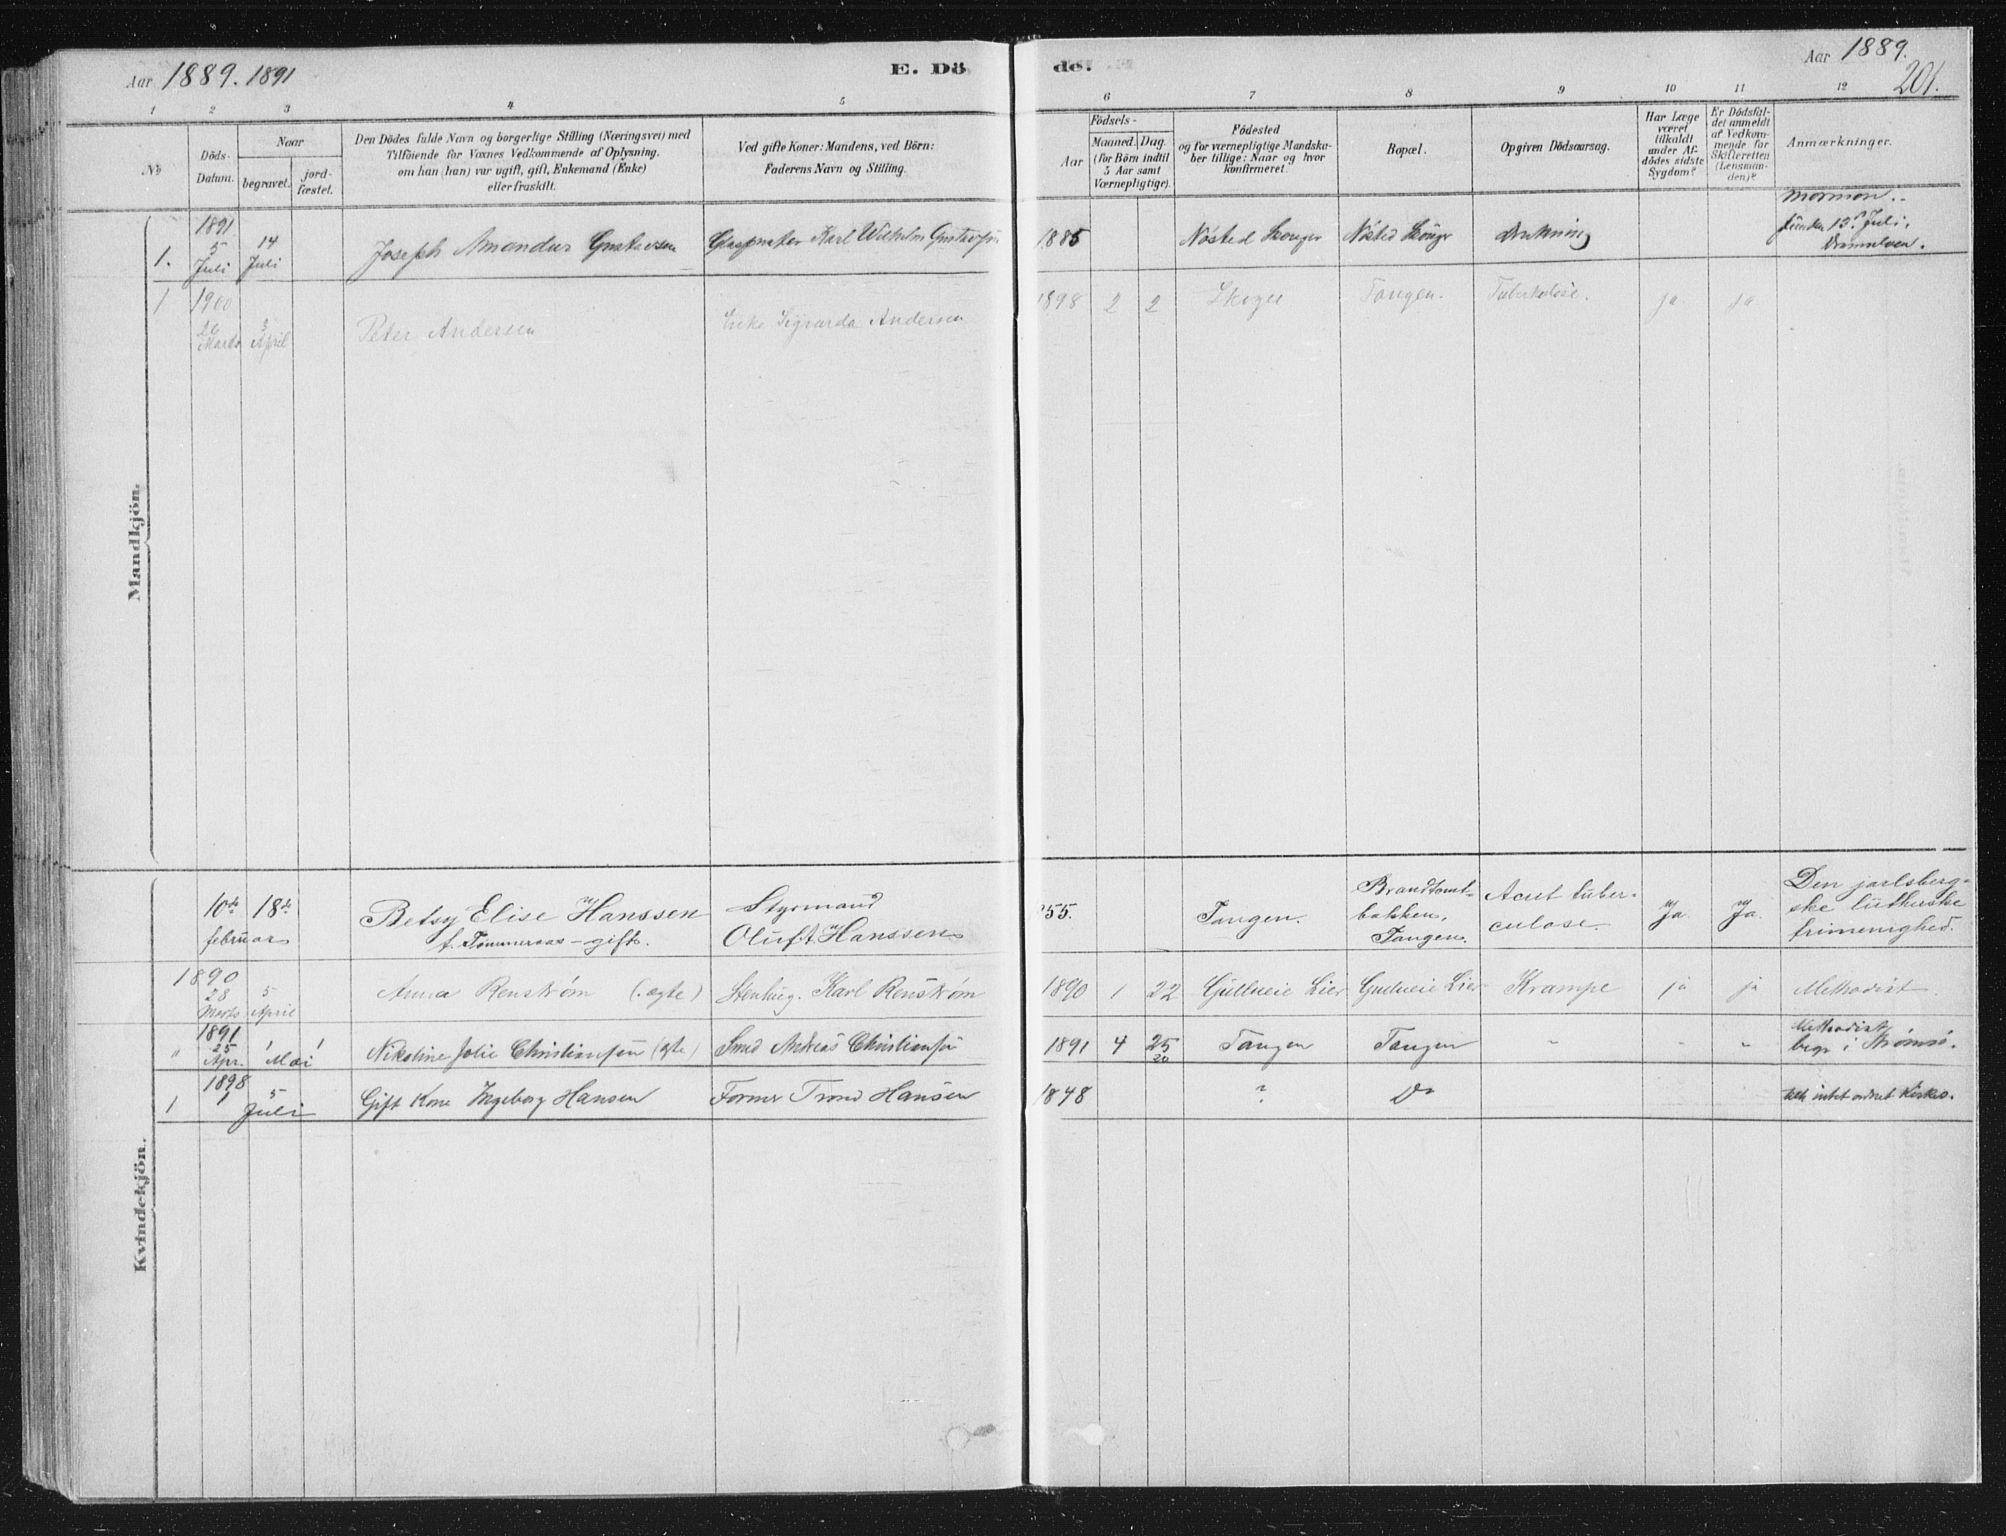 Aar 1889. 1891
E. Dö
de.
Aar 1889.
201.
1 2 3 4 5 6 7 8 9 10 11 12
No
Döds-
Datum.
Naar
begravet.
jord-
fæstet.
Den Dödes fulde Navn og borgerlige Stilling (Næringsvei) med
Tilföiende for Voxnes Vedkommende af Oplysning,
om han (hun) var ugift, gift, Enkemand (Enke)
eller fraskilt.
Ved gifte Koner: Mandens, ved Börn:
Faderens Navn og Stilling.
Födsels-
Aar
Maaned.
Dag.
(for Börn indtil
5 Aar samt
Værnepligtige).
Födested
og for værnepligtige Mandska-
ber tillige: Naar og hvor
konfirmeret.
Bopæl.
Opgiven Dödsaarsag.
Har Læge
været
tilkaldt
under Af-
dödes sidste
Sygdom?
Er Dödsfal-
det anmeldt
af Vedkom-
mende for
Skifteretten
(Lensman-
den)?
Anmærkninger.
Mandkjön.
1. 1891 5 Juli 14 Juli Joseph Amandus Gustavsen Karl Wilhelm Gustavsen 1885 Nøsted Skouger Nøsted Skouger Drukning Mormon.
funden 13 Juli,
Dramselven.
1 1900 26 Marts 3 April Peter Andersen Enke Sigvarda Andersen 1898 2 2 Skoger Tangen. Tuberkulose. ja ja
Kvindekjön.
10de februar 18de Betsy Elise Hanssen
f. Tømmeraas – gift.
Styrmand
Oluf T. Hanssen
55. Tangen. Brandtomt-
bakken,
Tangen.
Acut tuber-
culose.
Ja. Ja.
Den jarlsberg-
ske lutherske
frimenighed.
1890 28 Marts 5 April Anna Renstrøm (ægte) Stenhug. Karl Renstrøm 1890 1 22 Gullueie Lier Gullueie Lier Krampe ja ja Methodist
" 1891 25 Apr. 1 Mai Nikoline Jolie Christiansen (ægte) Smed Andreas Christiansen 1891 4 25 20 Tangen Tangen " " " Methodist
begr i Strømsø.
1 1898 1 5 Juli Gift Kone Ingeborg Hansen Former Trond Hansen 1848 ? Do intet ordnet Kirkes.